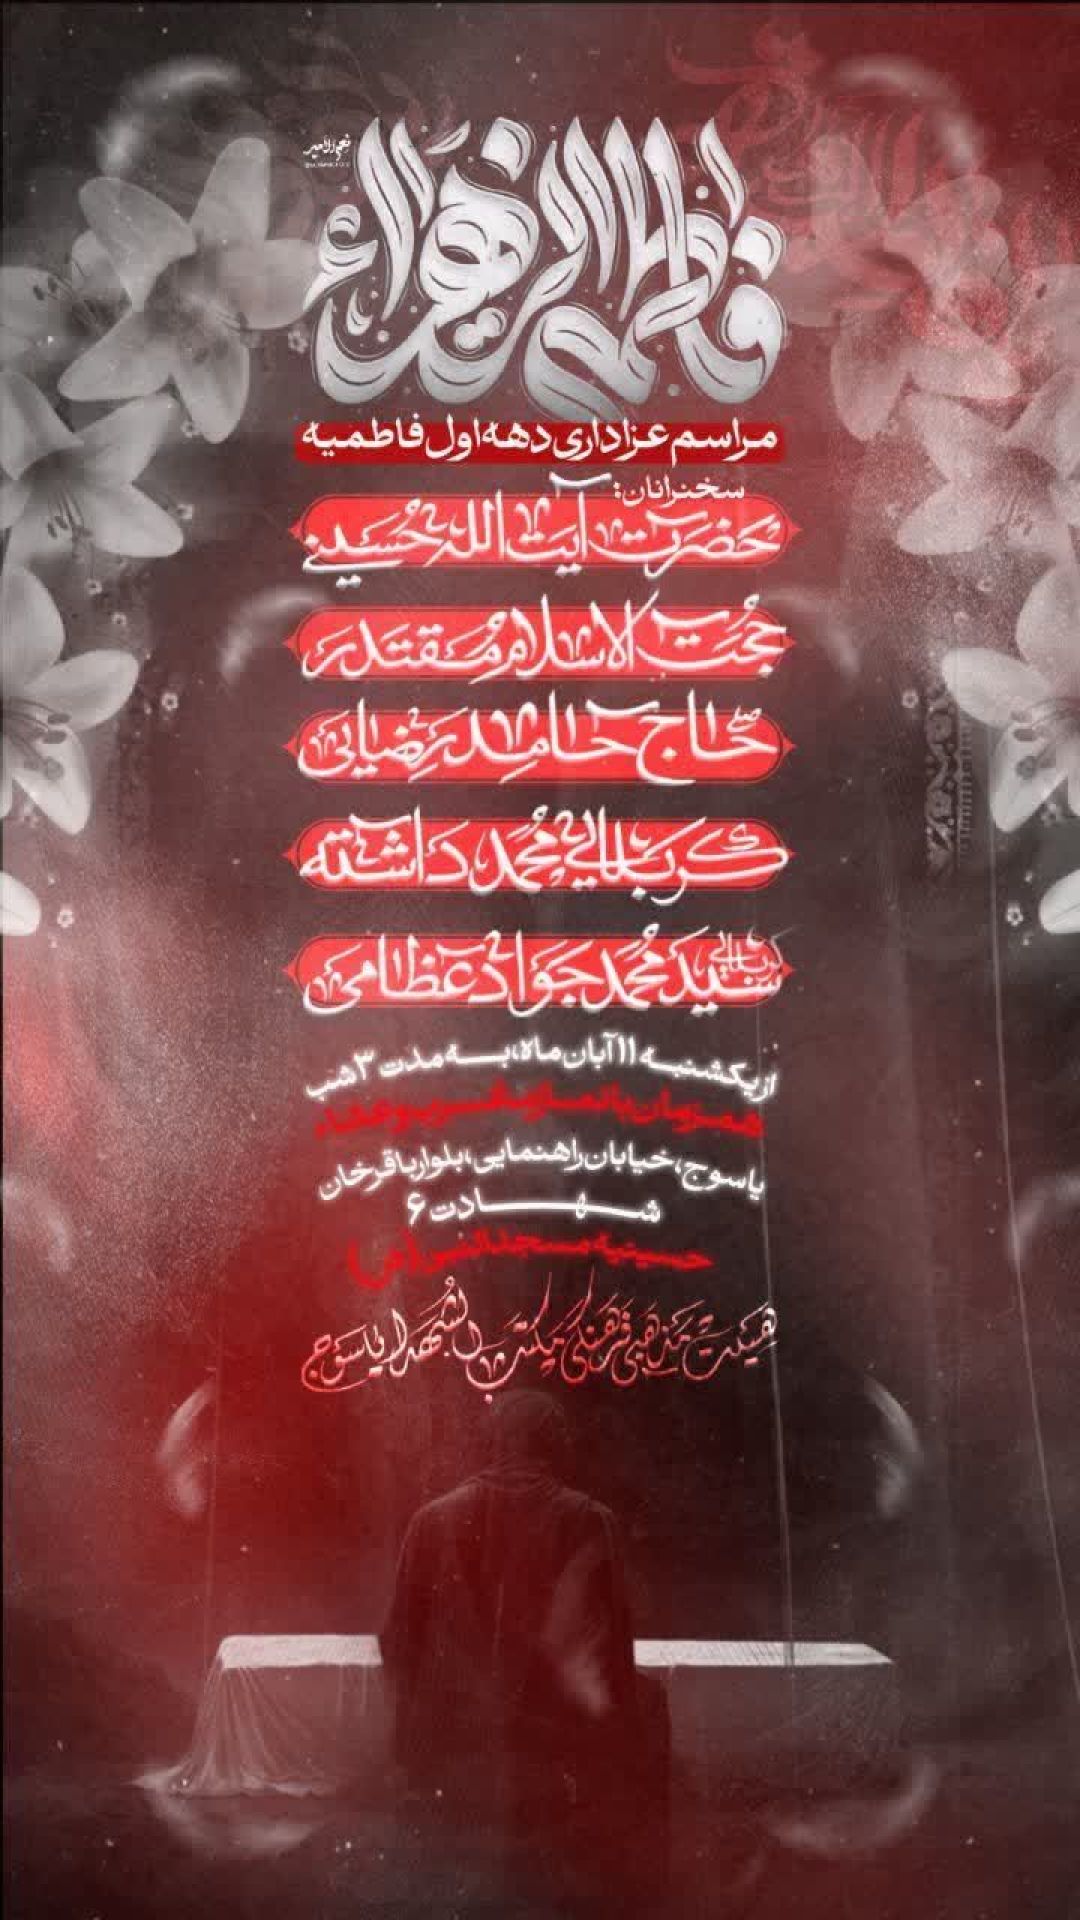 فاطمه الزهراء
مراسم عزاداری دهه اول فاطمیه
سخنرانان:
حضرت آیت الله حسینی
حجت الاسلام مقتدر
حاج حامد رضیایی
کربلایی محمد داشته
کربلایی سید محمد جواد عظامی
از یکشنبه ۱۱ آبان ماه، به مدت ۳ شب
همزمان با نماز مغرب و عشاء
یاسوج، خیابان راهنمایی، بلوار باقرخان
شهادت ۶
حسینیه مسجد النبی (ص)
هیئت مذهبی فرهنگی مکتب الشهدا یاسوج